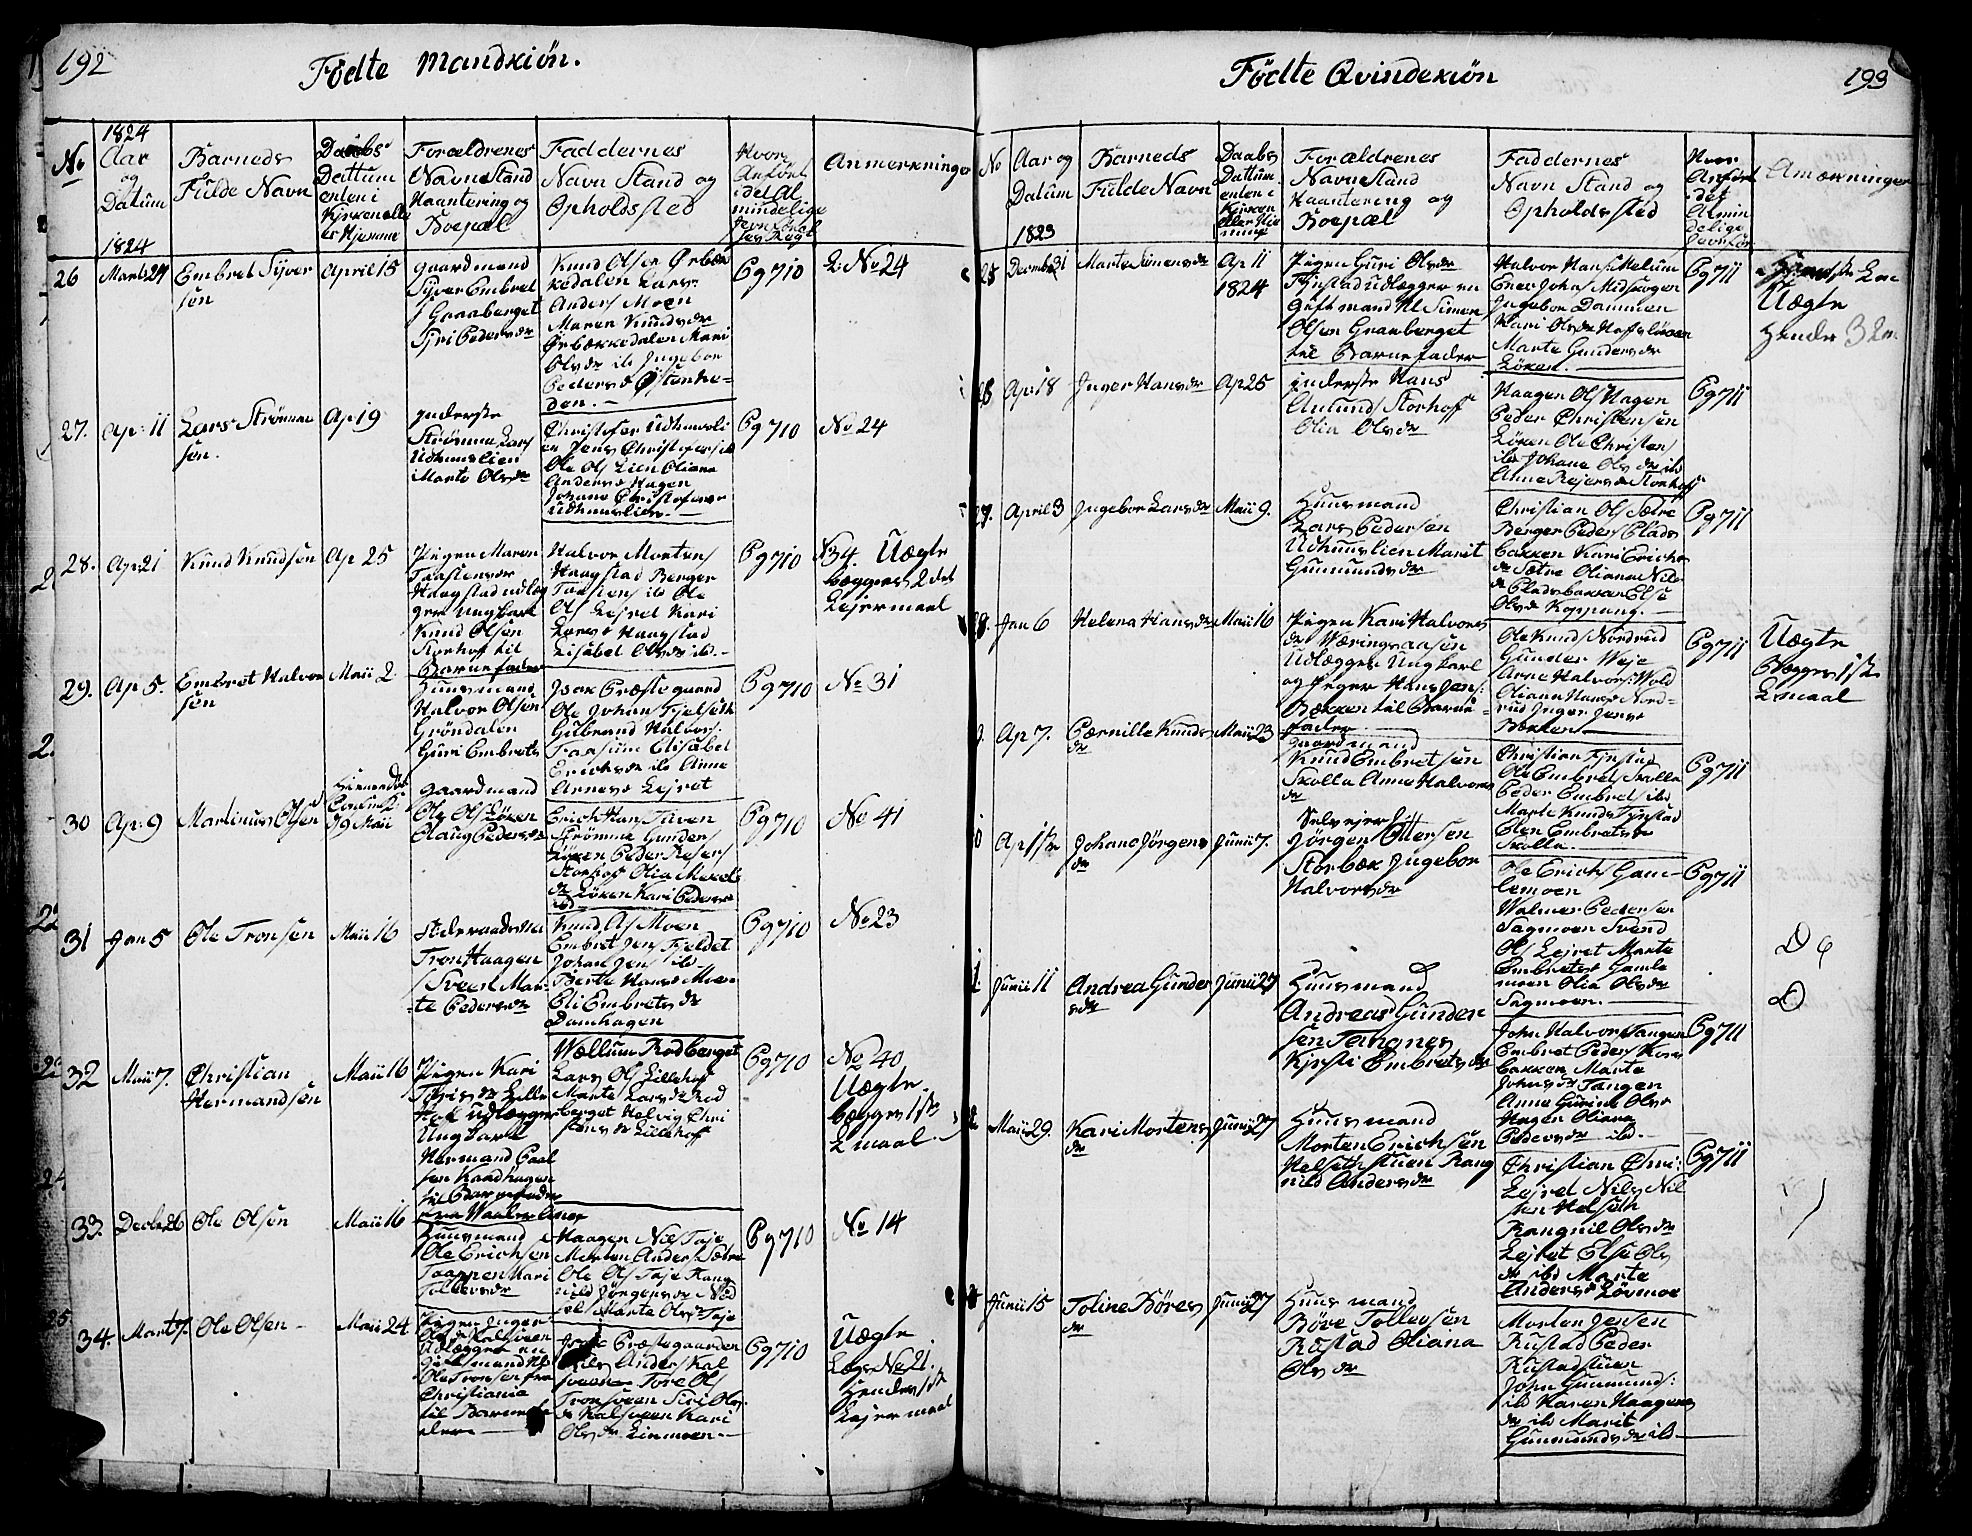 192
Fødte Mandkiön.
No
1824
Aar
og
Datum
1824
Barneds
Fulde Navn
Daabs
Dattum
enten i
Kjerken elle
er Hjemme
Forældrenes
Navn Stand
Haantering og
Boepæl
Faddernes
Navn Stand og
Opholdssted
Hvor
Anført
i det Al
mindelige
Anmerkninger
26
Marts 24
Embret Syver
sen
April 15
Gaardmand
Syver Embret
s Graaberget
Siri Pedersdr
Knud Olsen Ørbæk
kedalen Lars
Anders Moen
Maren Knudsdr
Ørbækkedalen Mari
Olsdr ib Ingebor
Pg 710
L. No 24
27.
Ap. 11
Lars Strømme
sen.
Ap 19
Inderste
Strømme Lars
Udhuuslien
Marte Olsdr
Christofer Udhuusli
en Jens Christofers ib
Ole Ols Lien Oliana
Anders Hagen
Johane Christofersdr
Udhuuslien
Pg 710
No 24
28.
Ap. 21
Knud Knudsen
Ap 25
Pigen Maren
Taastensdr
Haagstad udlæg
ger Ungkarl
Knud Olsen
Storhof til
Barnefader
Halvor Mortens
Haagstad Berger
Taastens ib Ole
Ols Lejret Kari
Larsd Haagstad
Lisabel Olsdr ib
Pg 710
N34. Uægte
begges 2det
Lejermaal
29.
Ap 5.
Embret Halvor
sen
Maii 2
Huusmand
Halvor Olsen
Grøndalen
Guri Embrets
Isak Præstegaard
Ole Johan Fjelseth
Gulbrand Halvors
Fansum Elisabel
Ericksdr ib Anne
Arnesd Lejret
Pg 710
No 31
30
Ap. 9
Martinus Olsen
19 Maii
Gaardmand
Ole Ols Løken
Olaug Pedersdr
Erich Hans Tuven
Strømme Gunders
Løken Peder Rejers
Storhof Olia Mikels
dr Løken Kari Pedersdr
ibd
Pg 710
No 41
31
Jan 5
Ole Tronsen
Maii 16
Tron Haagen
s Sveen Mar-
te Pedersdr
Knud Ols Moen
Embret Jens Fjeldet
Johan Jens ib
Berte Hansd Moen
Eli Embretsdr
Damhagen
Pg 710
No 23
32
Maii 7.
Christian
Hermandsen
Maii 16
Pigen Kari
Torisdr Lille
Hof udlægger
Ungkarl
Hermand Paal
sen Kaadhagen
til Barnefader
fra Waalerlinos
Wællum Rodberget
Lars Ols Lillehof
Marte Larsdr Rod
berget Helvig Chri
stensdr Lillehof
Pg 710
No 40
Uægte
begges 1ste
Lmaal.
33.
Decbr 26
Ole Olsen
Maii 16
Huusmand
Ole Erichsen
Taappen Kari
Tollevsdr
Haagen Niels Taje
Morten Anders Sætre
Ole Ols Taje Rang
nild Jørgensdr Nød
sel Marte Olsdr Taje
Pg 710
No 14
34.
Marts 7.
Ole Olsen
Maii 24
Pigen Inger
Olsdr Kalsveen
Udlægger en
Giftmand Nl
Ole Tronsen fra
Christiania
til Barnefa
der
Isak Præstegaarden
Nils Anders Kal
sveen Tore Ols
Tronsveen Siri Ols
dr Kalsveen Kari
Olsdr Linmoen
Pg 710
Uægte
Lægs No 21.
Hendes 1ste
Lejermaal
193
Fødte Qvindekiön
No
Aar og
Datum
1823
Barneds
Fulde Navn
Daabs
Dattum
enten i
Kjerken
eller Hje
mme
Forældrenes
Navn Stand
Haantering og
Boepæl
Faddernes
Navn Stand og
Opholdssted
Hvor
Anført
i det
Almin
delige
Amærkninger
25
Decmbr 21
Marte Simensdr
Ap 11
1824
Pigen Guri Olsdr
Fynstad udlægger en
Giftmand Nl Simen
Olsen Graaberget
til Barnefader
Halvor Hans Melum
Ener Johns Midskogen
Ingebor Dammen
Kari Olsdr Hoffsløkken
Marte Gundersdr
Løken.
Pg 711
Uægte
Hendes 3 Lm
Ap 18
Inger Hansdr
Ap 25
Inderste Hans
Amunds Storhof
Olia Olsdr
Haagen Ols Hagen
Peder Christensen
Løken Ole Christens
ibd Johane Olsdr ib
Anne Rejersdr Storhof
Pg 711
27.
April 3
Ingebor Larsdr
Maii 9.
Huusmand
Lars Pedersen
Udhuuslien Marit
Gunmundsdr
Christian Ols Sætre
Berger Peders Plads
bakken Kari Erichs
dr Sætre Oliana Nils
dr Pladsbakken Else
Olsdr Koppang.
Pg 711
28.
Jan 6
Helena Hansdr
Maii 16
Pigen Kari Halvors
dr Wæringsaasen
Udlægger Ungkarl
og Peger Hans Jens
Bækken til Barne-
fader
Ole Knuds Nordrud
Gunder Weje
Arne Halvors Wold
Oliana Hansd Nord-
rud Inger Jensd
Bækken
Pg 711
Uægte
Begges 1ste
Lmaal
Ap 7.
Pernille Knuds
dr
Maii 23
Gaardmand
Knud Embretsen
Skolla Anne Halvors
dr
Christian Fynstad
Ole Embrets Skolla
Peder Embrets ibd
Marte Knudsd Fynstad
Olea Embretsdr
Skolla
Pg 711
Ap 1ste
Johane Jørgens
dr
Junii 7.
Selvejer
Jørgen Ottersen
Storbæk Ingebor
Halvorsdr
Ole Erichs Gam-
lemoen
Walmer Pedersen
Sagmoen Svend
Ols Lejret Marte
Embretsd Gamle
moen Olia Olsdr
Sagmoen.
Pg 711
D 6
D
Junii 11
Andrea Gunder
sdr
Junii 27
Huusmand
Andreas Gunder
sen Tangnes
Kjersti Embretsdr
John Halvors Tangen
Embret Peders Kors
bakken Marte
Johnsdr Tangen
Anne Gurine Olsd
Hagen Oliana
Pedersdr ibd.
Pg 711
Maii 29.
Kari Mortens
dr
Junii 27
Huusmand
Morten Erichsen
Helsethstuen Rang
nild Andersdr
Christian Chri:
Lejret Nils Nil
sen Helseth
Rangnil Olsdr
Lejret Else Ols
dr ibd Marte
Andersd Løvmoe
Pg 711
Junii 15
Toline Børes
dr
Junii 27
Huusmand
Børe Tollevsen
Rustad Oliana
Olsdr
Morten Jensen
Rustad Peder
Rustadstuen
John Gunmunds:
ib Karen Haagens
dr ib Marit
Gunmundsdr ib